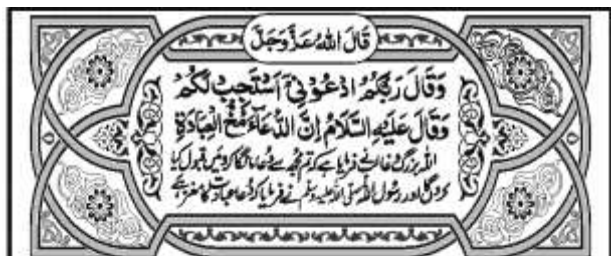 قَالَ اللهُ عَزَّوَجَلَّ
وَقَالَ رَبُّكُمُ ادْعُوْنِیْۤ اَسْتَجِبْ لَكُمْ
وَقَالَ عَلَیْهِ السَّلَامُ اِنَّ الدُّعَآءَ مُخُّ الْعِبَادَةِ
اللہ بزرگ و غالب نے فرمایا ہے کہ تم مجھ سے دُعا مانگا کرو میں قبول کیا
کروں گا اور رسول اللہ صلی اللہ علیہ وسلم نے فرمایا کہ دُعا عبادت کا مغز ہے